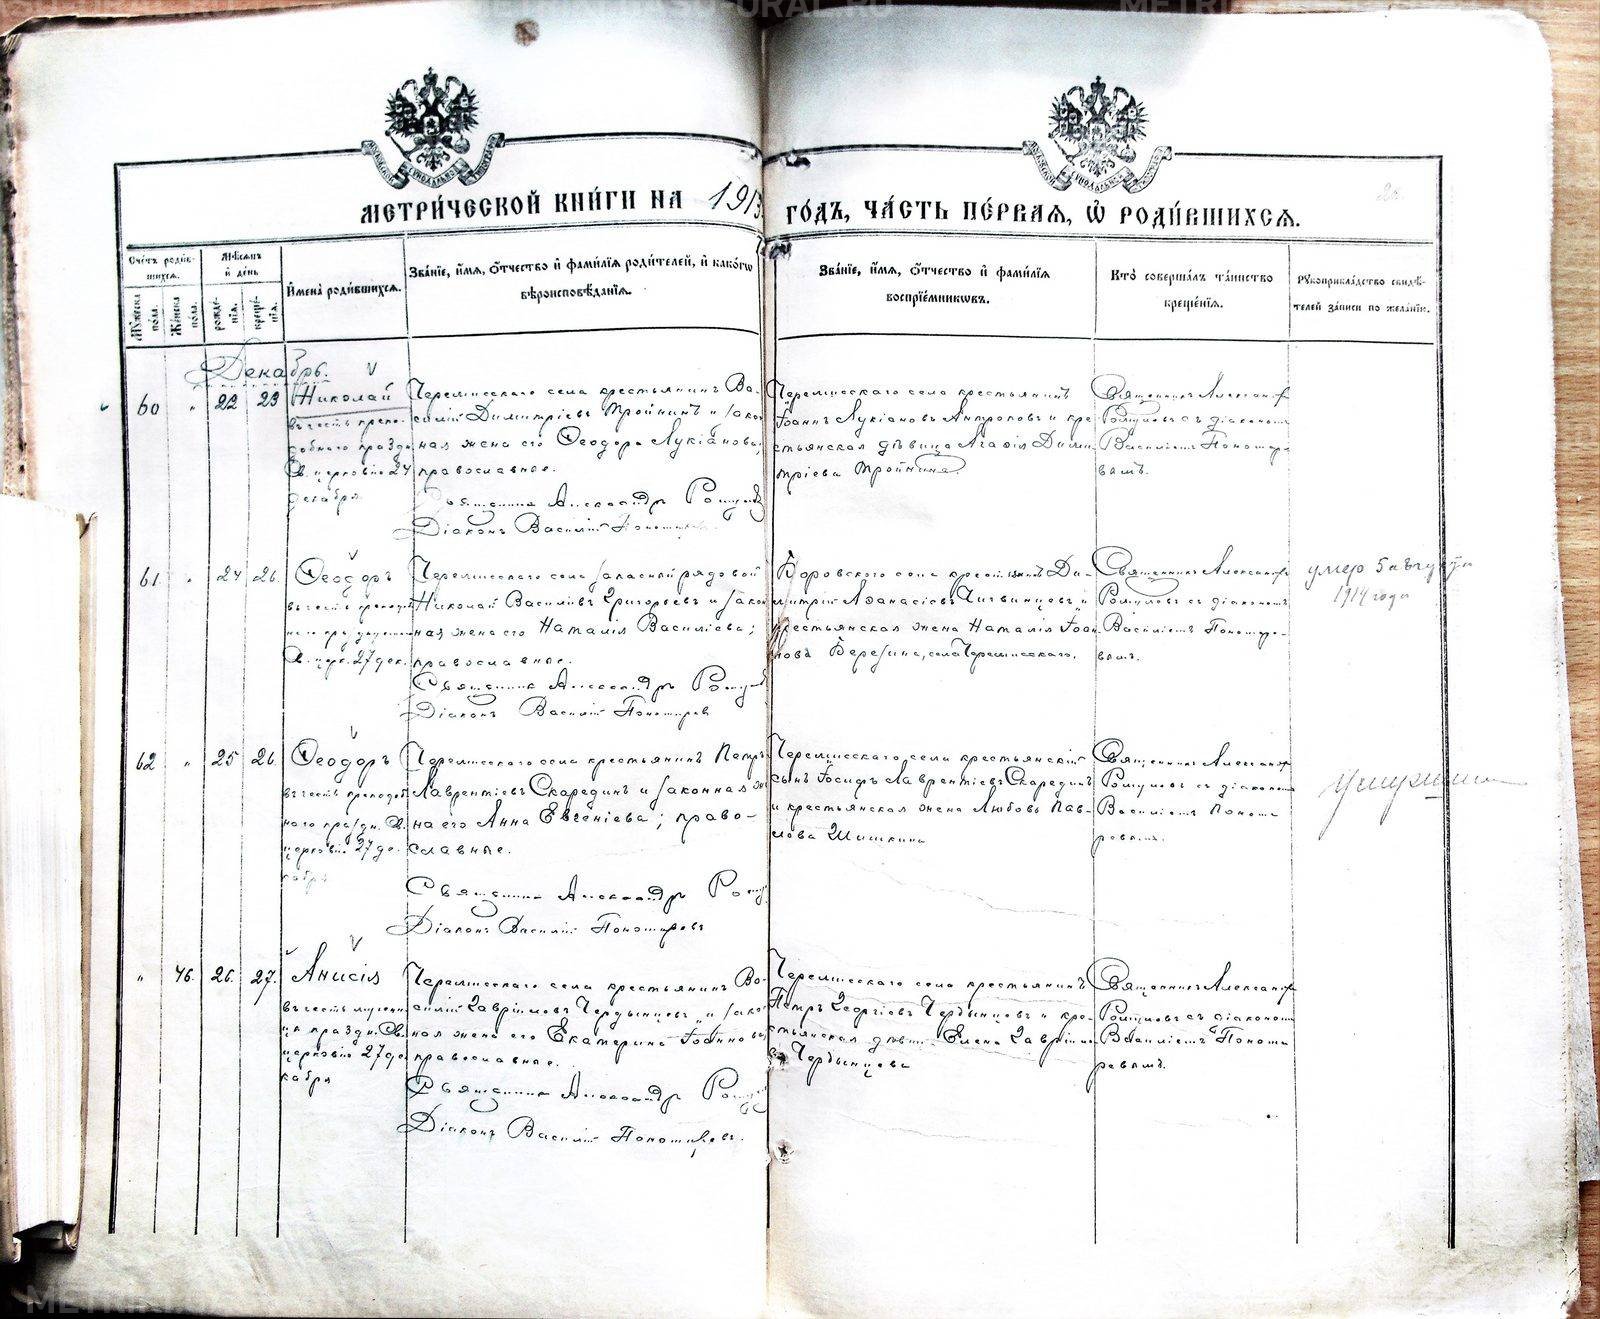 METRIKI.GASU-URAL.RU
METRIKI.GASU-URAL.RU
МЕТРИ́ЧЕСКОЙ КНИ́ГИ НА 1913
ГО́ДЪ, ЧА́СТЬ ПЕ́РВАЯ, Ѡ҆ РОДИ́ВШИХСЯ.
Сче́тъ роди́в-
шихся.
Му́жеска по́ла.
Же́нска по́ла.
Мѣ́сяцъ
и҆ де́нь
рожде́-
нїя.
креще́-
нїя.
И҆мена̀ роди́вшихся.
Зва́нїе, и҆́мя, ѻ҆́тчество и҆ фами́лїя роди́телей, и҆ како́гѡ
вѣроисповѣ́данїя.
Зва́нїе, и҆́мя, ѻ҆́тчество и҆ фами́лїя
воспрїе́мникѡвъ.
Кто̀ соверша́лъ та́инство
креще́нїя.
Рꙋкоприкла́дство свидѣ́-
телей за́писи по жела́нїю.
Декабрь.
60 " 22 23 Николай
въ честь препо-
добнаго праздн.
Св. церковію 24
декабря
Черемисскаго села крестьянинъ Ва-
силій Димитріевъ Тройнинъ и закон-
ная жена его Ѳеодора Лукіанова;
православные.
Священникъ Александръ
Діаконъ Василій Пономаревъ
Черемисскаго села крестьянинъ
Іоаннъ Лукіановъ Антроповъ и кре-
стьянская дѣвица Агаѳія Дими-
тріева Тройнина
Священникъ Александръ
съ діакономъ
Василіемъ Пономаре-
вымъ.
61 " 24 26 Ѳеодоръ
въ честь преподоб
Св. церк. 27 дек.
Черемисскаго села запасный рядовой
Николай Василіевъ Григорьевъ и закон-
ная жена его Наталія Василіева;
православные.
Священникъ Александръ
Діаконъ Василій Пономаревъ
Боровского села крестьянинъ Ди-
митрій Аѳанасіевъ и
крестьянская жена Наталія Іоан-
нова Березина, села Черемисскаго.
Священникъ Александръ
съ діакономъ
Василіемъ Пономаре-
вымъ.
умер 5 августа
1914 года
62 " 25 26 Ѳеодоръ
въ честь преподоб-
наго праздн. Св.
церковію 27 де-
кабря
Черемисскаго села крестьянинъ Петръ
Лаврентіевъ Скарединъ и законная же-
на его Анна Евгеніева; право-
славные.
Священникъ Александръ
Діаконъ Василій Пономаревъ
Черемисскаго села крестьянскій
сынъ Іосифъ Лаврентіевъ Скарединъ
и крестьянская жена Любовь Пав-
лова Шишкина
Священникъ Александръ
съ діакономъ
Василіемъ Понома-
ревымъ.
" 46 26 27 Анисія
въ честь мучени-
цы праздн. Св.
церковію 27 де-
кабря
Черемисскаго села крестьянинъ Ва-
силій Гавріиловъ Чердынцевъ и закон-
ная жена его Екатерина Іоаннова
православные.
Священникъ Александръ
Діаконъ Василій Пономаревъ.
Черемисскаго села крестьянинъ
Петръ Георгіевъ Чердынцевъ и кре-
стьянская дѣвица Елена Гавріило-
ва Чердынцева
Священникъ Александръ
съ діакономъ
Василіемъ Понома-
ревымъ.